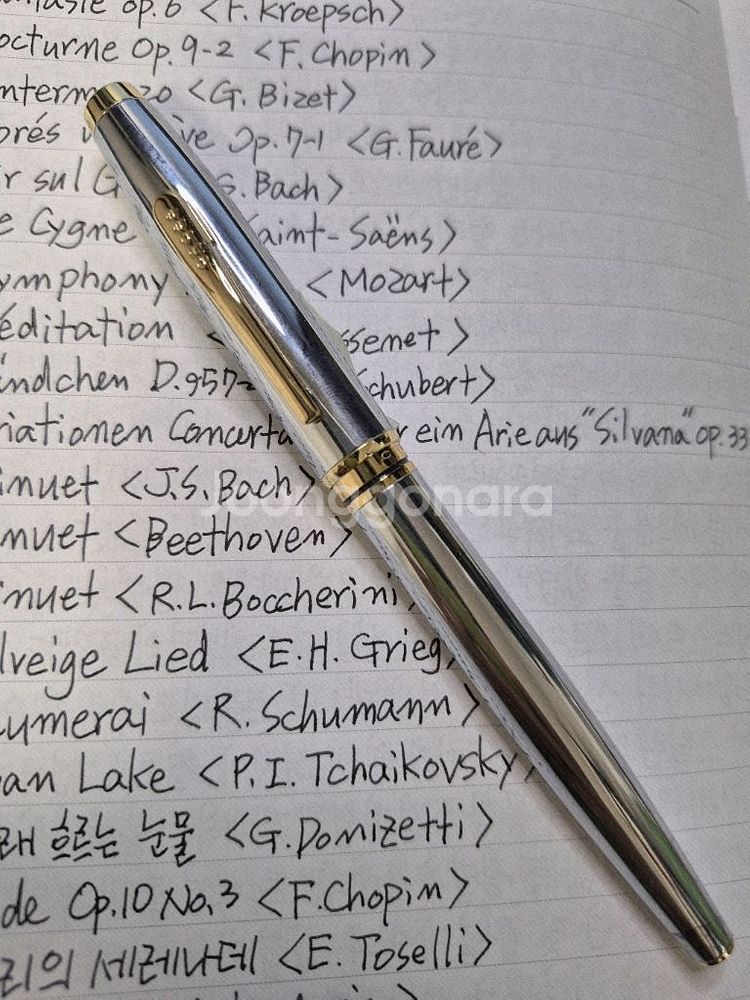 op.6 <F. Kroepsch>
octurne Op.9-2 <F. Chopin>
<G. Bizet>
Op.7-1 <G.Fauré>
r sul G S.Bach>
e Cygne Saint-Saëns>
ymphony <Mozart>
éditation ssenet>
ändchen D.957- Schubert>
riationen Concerta r ein Arie aus "Silvana" op.33
inuet <J.S.Bach>
nuet <Beethoven>
inuet <R.L.Boccherini>
lveige Lied <E.H. Grieg>
umerai <R. Schumann>
an Lake <P.I. Tchaikovsky>
래 흐르는 눈물 <G.Donizetti>
de Op.10 No.3 <F.Chopin>
리의 세레나데 <E. Toselli>
Joonggonara